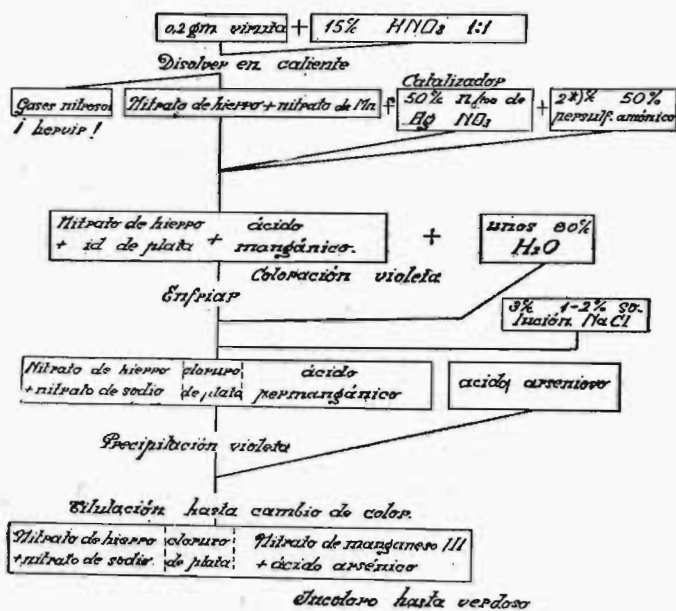 0,2 gm viruta + 15% HNO3 1:1
Disolver en caliente
Catalizador
Gases nitrosos
¡ hervir !
Nitrato de hierro + nitrato de Mn +
50% n/100 de
Ag NO3
+
2*)% 50%
persulf. amónico
Nitrato de hierro
+ id de plata +
ácido
mangánico.
+
unos 80%
H2O
Coloración violeta
Enfriar
3% 1-2% so-
lución NaCl
Nitrato de hierro
+nitrato de sodio
cloruro
de plata
ácido
permangánico
acido, arsenioso
Precipitación violeta
Titulación hasta cambio de color.
Nitrato de hierro
+nitrato de sodio.
cloruro
de plata
Nitrato de manganeso III
+ácido arsénico
Incoloro hasta verdoso